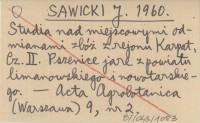 SAWICKI J. 1960.
Studia nad miejscowymi od-
mianami zbóż z rejonu Karpat.
Cz. II. Pszenice jare z powiatu
limanowskiego i nowotarskie-
go. — Acta Agrobotanica
(Warszawa) 9, nr 2.